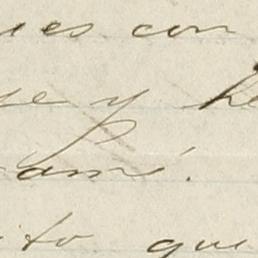 ues con
se y he
amé.
ito que